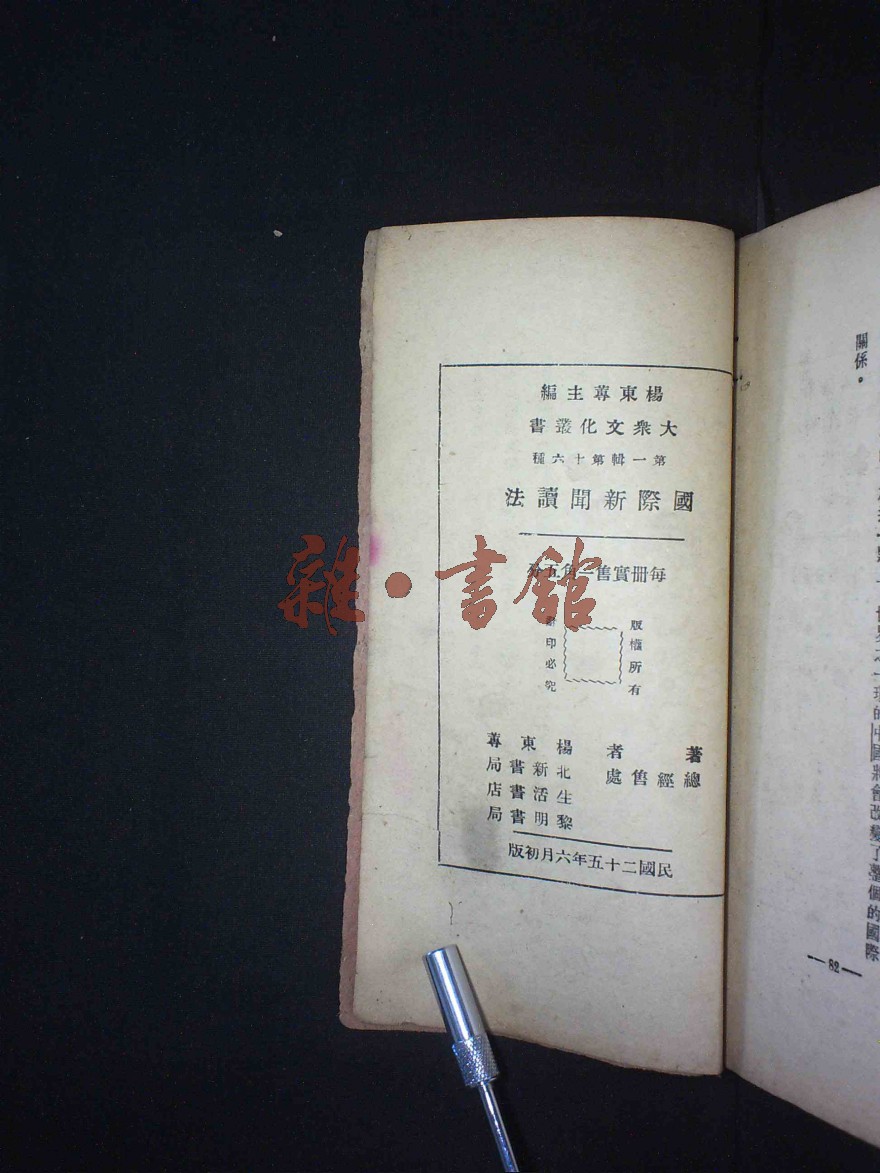 世界之一環的中國將會改變了整個的國際
關係。
—82—
楊東蓴主編
大衆文化叢書
第一輯第十六種
國際新聞讀法
每册實售一角五分
版權所有
印必究
著者 楊東蓴
總經售處 北新書局
生活書店
黎明書局
民國二十五年六月初版
雜·書館